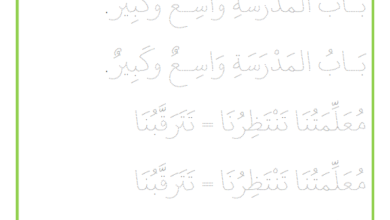 بَــابُ المَدْرَسَةِ وَاسِــعٌ وكَبِيرٌ.
بَــابُ المَدْرَسَةِ وَاسِــعٌ وكَبِيرٌ.
مُعَلِّمَتُنَا تَنْتَظِرُنَا = تَتَرَقَّبُنَا
مُعَلِّمَتُنَا تَنْتَظِرُنَا = تَتَرَقَّبُنَا